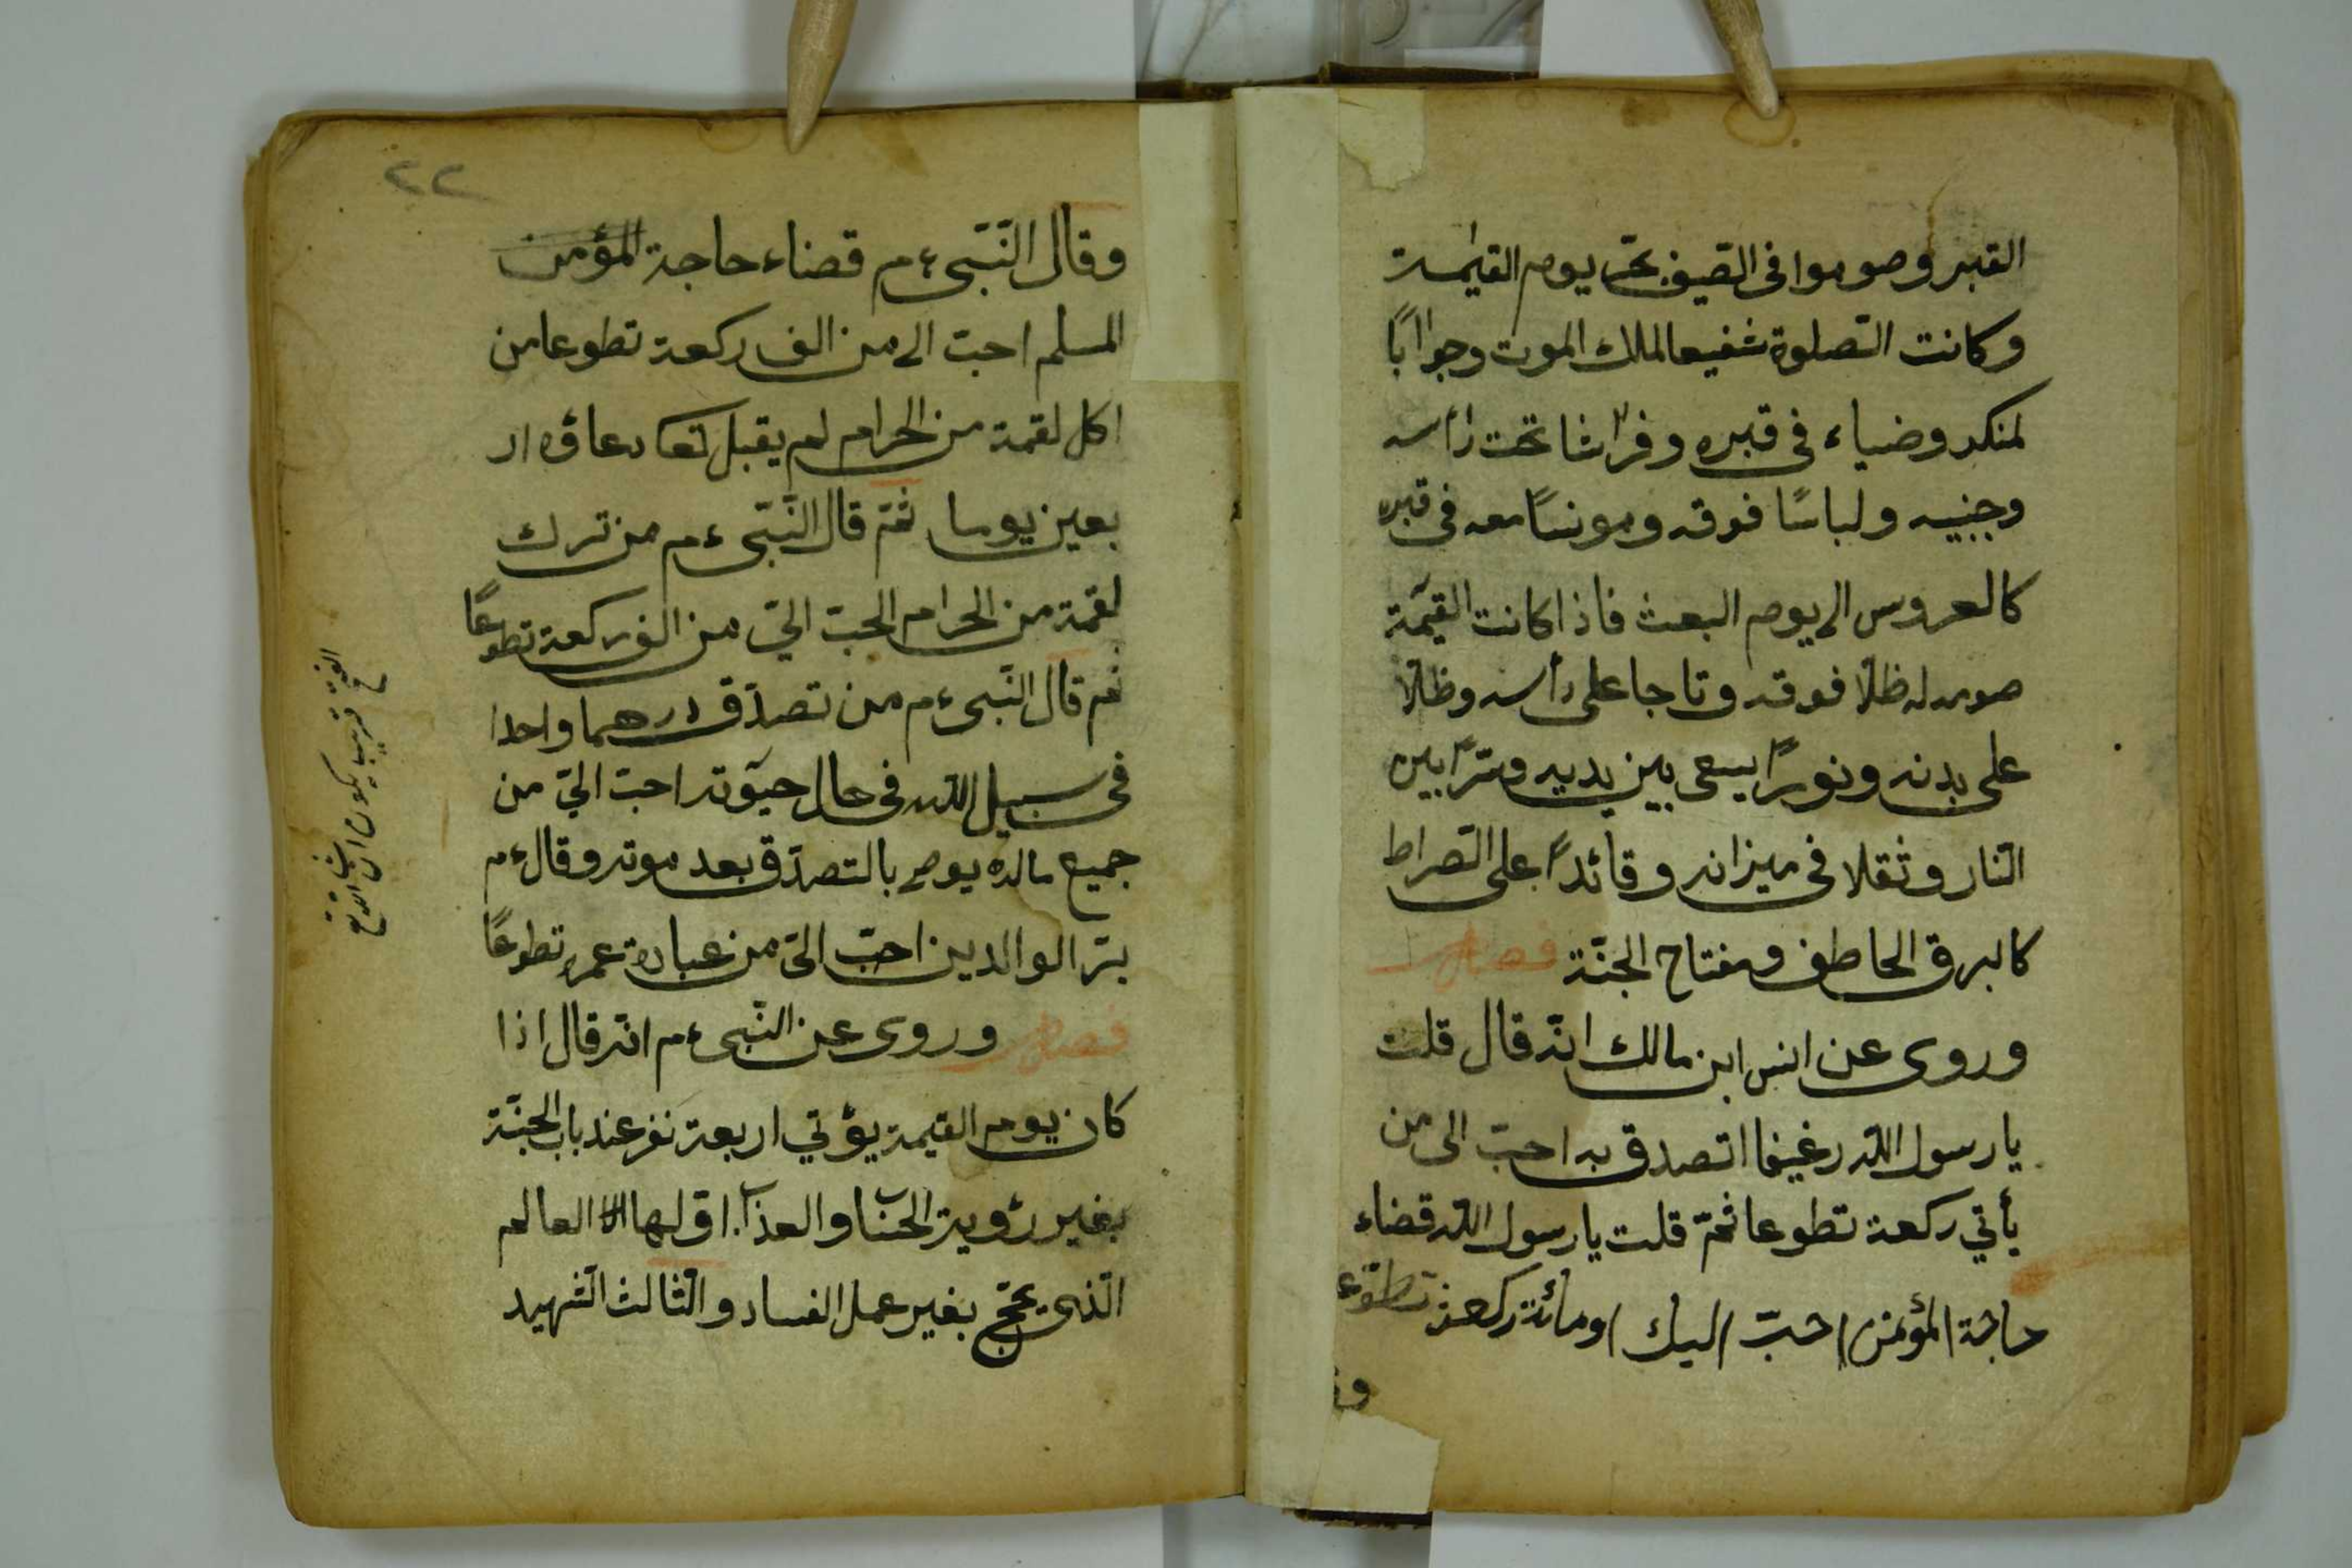 القبر وصوموا فى الصيف تحر يوم القيٰمة
وكانت الصّلوة شفيعا لملك الموت وجوابًا
لمنكر وضياء فى قبره وفراشا تحت رأسه
وجنبيه ولباسًا فوقه ومونسًا معه فى قبره
كالعروس الى يوم البعث فاذا كانت القيٰمة
صوره له ظلّا فوقه وتاجا على رأسه وظلّا
على بدنه ونورًا يسعى بين يديه وسترا بين
النّار وثقلا فى ميزانه وقائدًا على الصّراط
كالبرق الخاطف ومفتاح الجنّة فصل
وروى عن انس ابن مالك انّه قال قلت
يا رسول اللّه رغيفا اتصدق به احبّ الى من
يأتي ركعة تطوعا ثمّ قلت يا رسول اللّه قضاء
حاجة المؤمن احبّ اليك او مائة ركعة تطوّع
وقال النّبى ءم قضاء حاجة المؤمن
المسلم احبّ الى من الف ركعة تطوعا من
اكل لقمة من الحرام لم يقبل تعا دعاؤه ار
بعين يوما ثمّ قال النّبى ءم من ترك
لقمة من الحرام احبّ اليّ من الف ركعة تطوعًا
ثم قال النّبى ءم من تصدّق درهما واحدا
فى سبيل اللّه فى حال حيٰوته احبّ اليّ من
جميع ماله يوصى بالتصدّق بعد موته وقال ءم
برّ الوالدين احبّ اليّ من عبادة عمره تطوعًا
فصل وروى عن النّبى ءم انّه قال اذا
كان يوم القيمة يؤتي اربعة نفر عند باب الجنّة
بغير رؤية الحساب والعذاب اوّلها العالم
الّذى يحجّ بغير عمل الفساد والثّالث الشّهيد
قريب يكون ان شا اللّه تع
٢٢